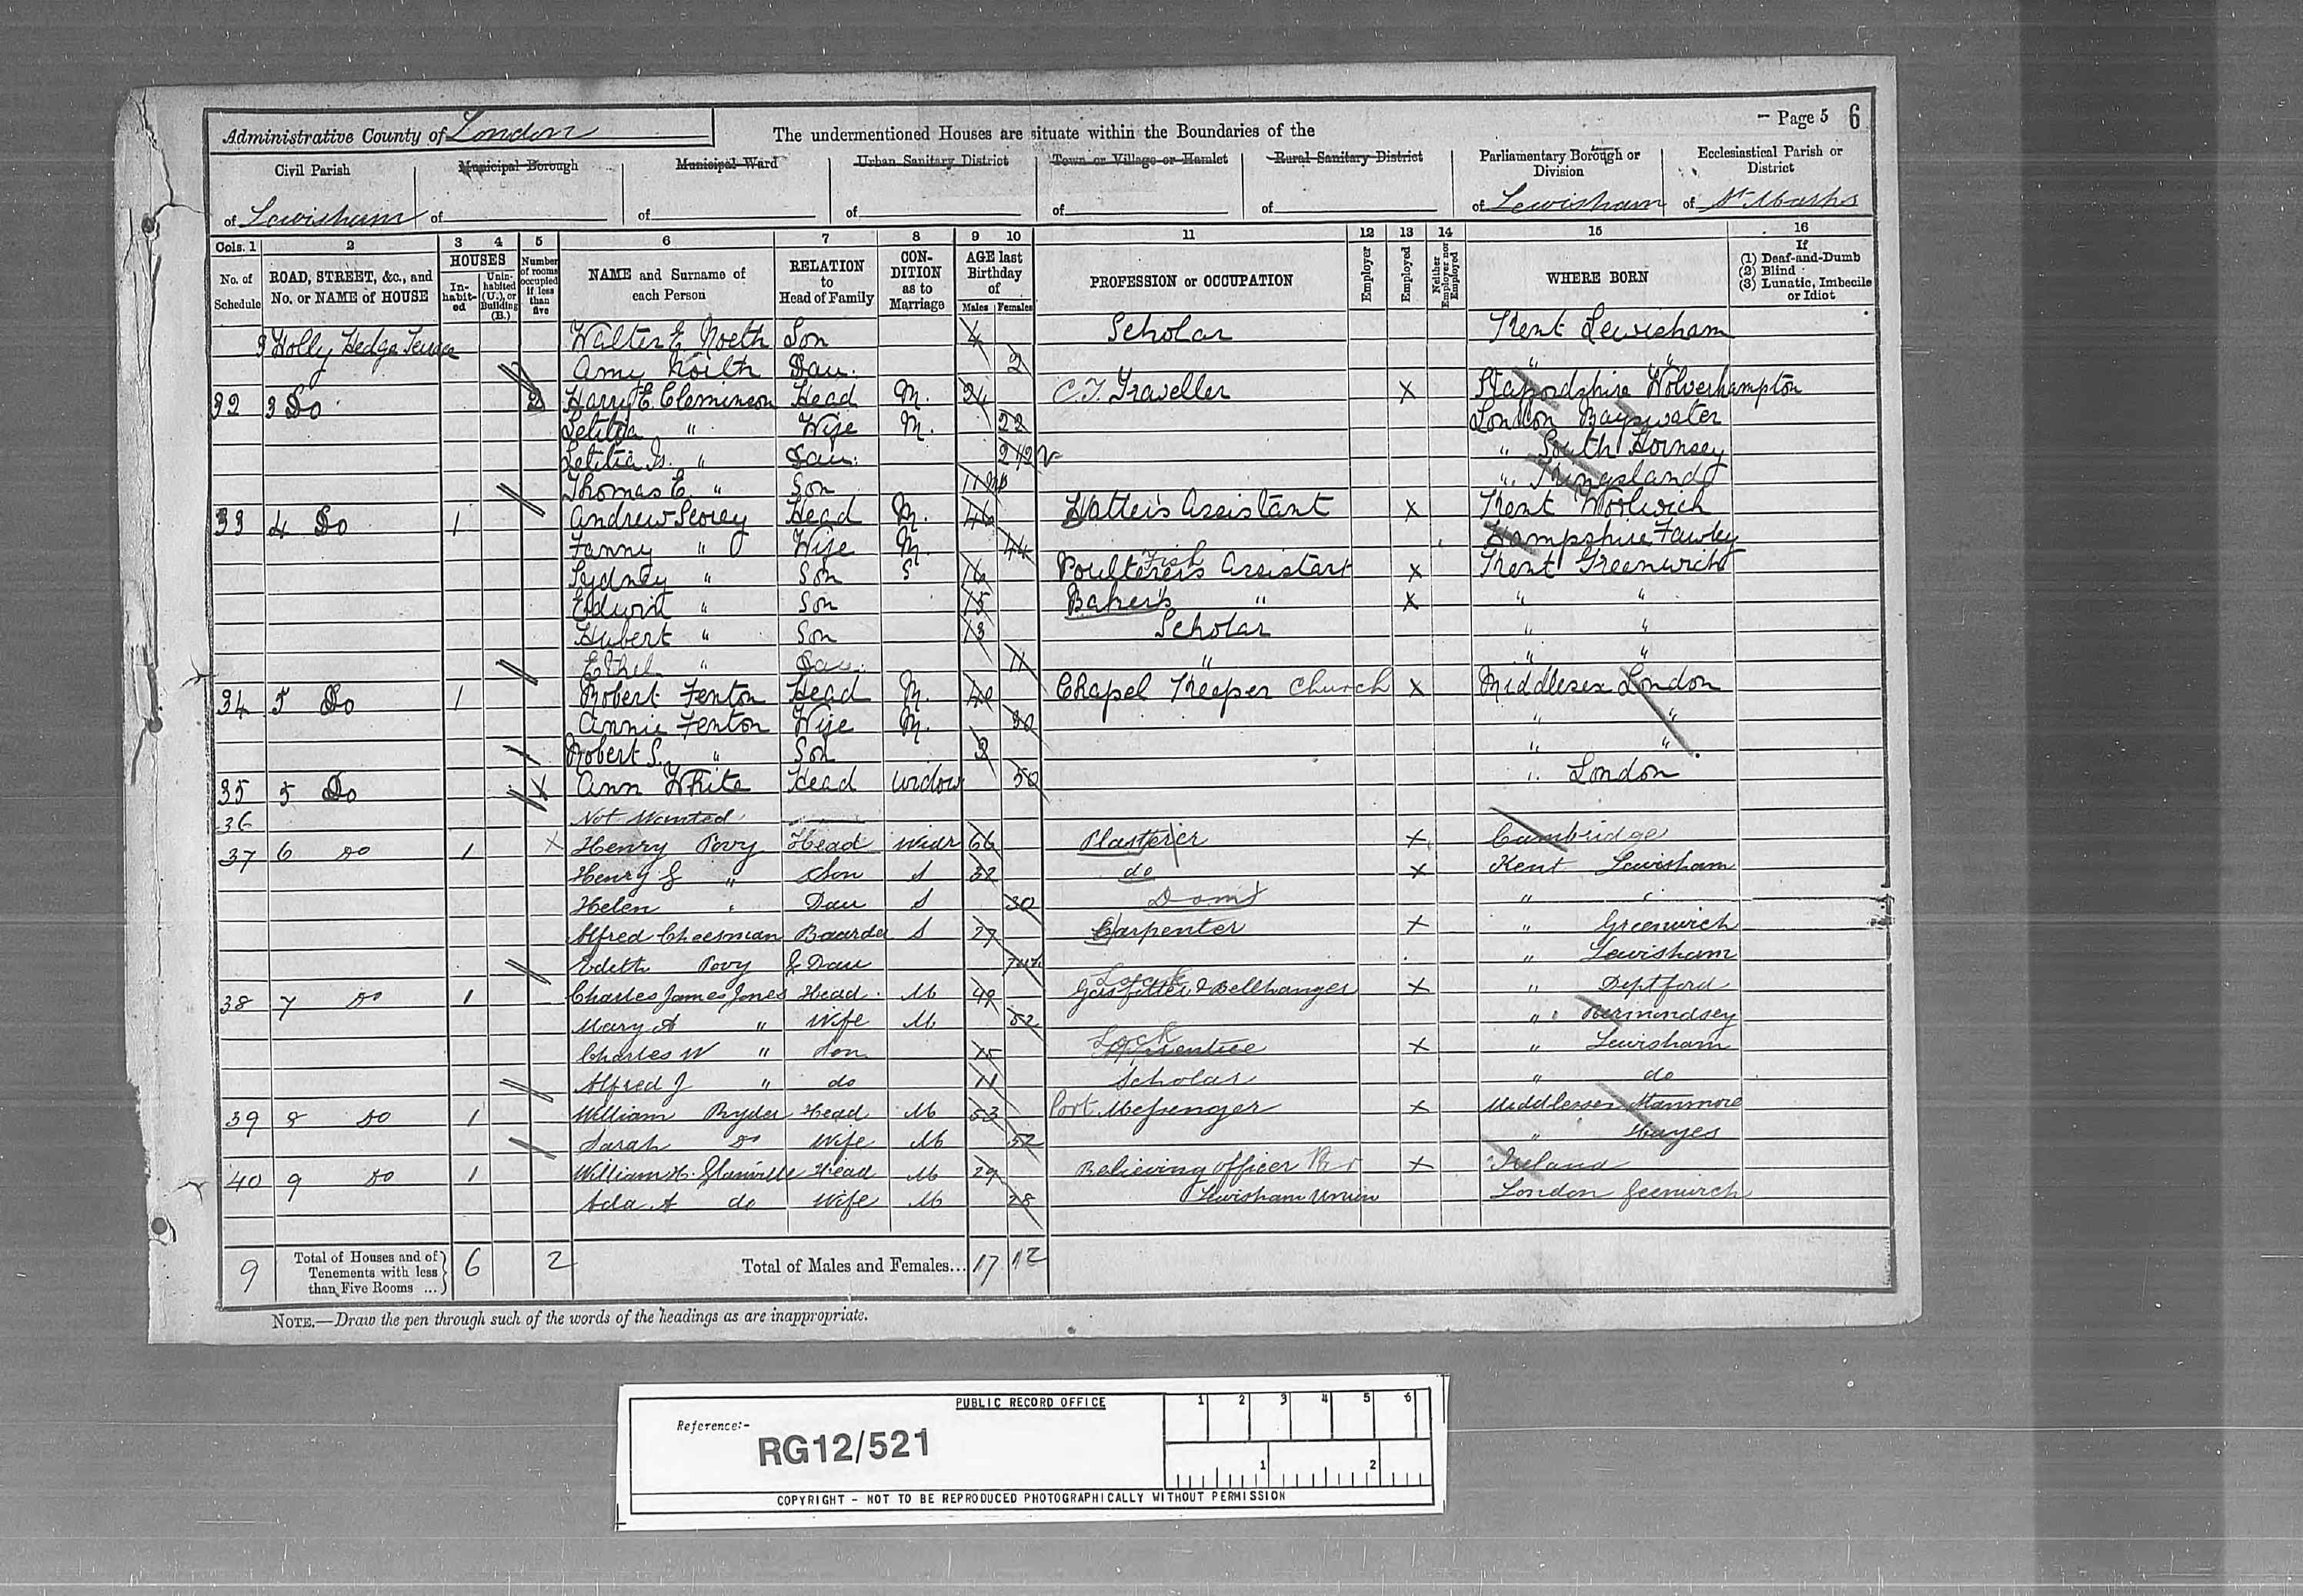 Page 5 6
Administrative County of London
The undermentioned Houses are situate within the Boundaries of the
Civil Parish
Municipal Borough
Municipal Ward
Urban Sanitary District
Town or Village or Hamlet
Rural Sanitary District
Parliamentary Borough or Division
Ecclesiastical Parish or District
of Lewisham of of of of of of Lewisham of St Marks
Cols. 1 2 3 4 5 6 7 8 9 10 11 12 13 14 15 16
No. of Schedule
ROAD, STREET, &c., and No. or NAME of HOUSE
HOUSES
Inhabited
Uninhabited (U.), or Building (B.)
Number of rooms occupied if less than five
NAME and Surname of each Person
RELATION to Head of Family
CONDITION as to Marriage
AGE last Birthday of
Males Females
PROFESSION or OCCUPATION
Employer
Employed
Neither Employer nor Employed
WHERE BORN
If
(1) Deaf-and-Dumb
(2) Blind
(3) Lunatic, Imbecile or Idiot
3 Holly Hedge Terrace Walter E North Son 4 Scholar Kent Lewisham
Amy North Dau. 2 " "
32 3 Do 2 Harry E Cleminson Head M. 24 C.T. Traveller X Staffordshire Wolverhampton
Letitia " Wife M. 22 London Bayswater
Letitia " Dau. 2 " South Hornsey
Thomas E " Son 11 mo " Kingsland
33 4 Do 1 Andrew Scorey Head M. 46 Hatter's Assistant X Kent Woolwich
Fanny " Wife M. 44 Hampshire Fawley
Sydney " Son S 16 Poulterer's Fish Assistant X Kent Greenwich
Edwin " Son 15 Baker's " X " "
Hubert " Son 13 Scholar " "
Ethel " Dau. 11 " " "
34 5 Do 1 Robert Fenton Head M. 40 Chapel Keeper Church X Middlesex London
Annie Fenton Wife M. 30 " "
Robert S. " Son 3 " "
35 5 Do Ann White Head Widow 50 " London
36 Not Wanted
37 6 Do 1 X Henry Povy Head Widr 66 Plasterer X Cambridge
Henry G " Son S 32 do X Kent Lewisham
Helen " Dau S 30 Dom " "
Alfred Cheesman Boarder S 27 Carpenter X " Greenwich
Edith Povy G Dau " Lewisham
38 7 Do 1 Charles James Jones Head M 49 Gasfitter & Bellhanger Lock X " Deptford
Mary A " Wife M 52 " Bermondsey
Charles W " Son 15 Apprentice Lock X " Lewisham
Alfred J " do 11 Scholar " do
39 8 Do 1 William Ryder Head M 53 Port Messenger X Middlesex Stanmore
Sarah Do Wife M 52 " Hayes
40 9 Do 1 William H. Glanville Head M 29 Relieving Officer X Ireland
Lewisham Union
Ada A do Wife M 28 London Greenwich
9 Total of Houses and of Tenements with less than Five Rooms ... 6 2 Total of Males and Females... 17 12
NOTE.—Draw the pen through such of the words of the headings as are inappropriate.
PUBLIC RECORD OFFICE
1 2 3 4 5 6
Reference:-
RG12/521
1 2
COPYRIGHT - NOT TO BE REPRODUCED PHOTOGRAPHICALLY WITHOUT PERMISSION